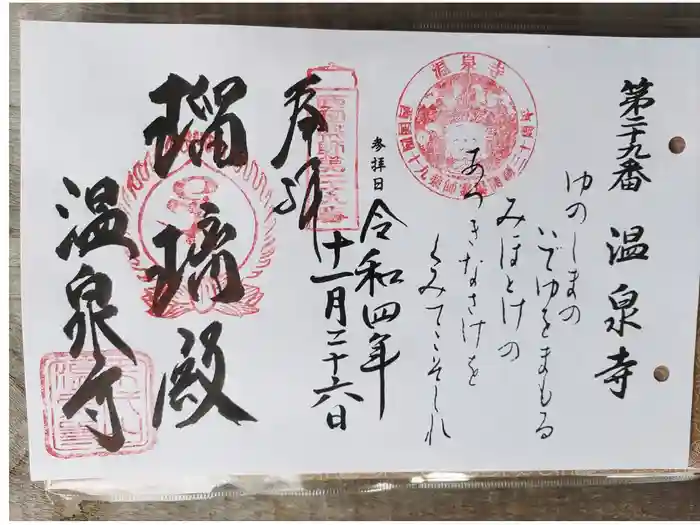 第二十九番 温泉寺
ゆのしまの
いでゆをまもる
みほとけの
あつきなさけを
くみてこそしれ
温泉寺
西国四十九薬師霊場
参拝日
令和四年
十一月二十六日
奉拝
瑠璃殿
温泉寺